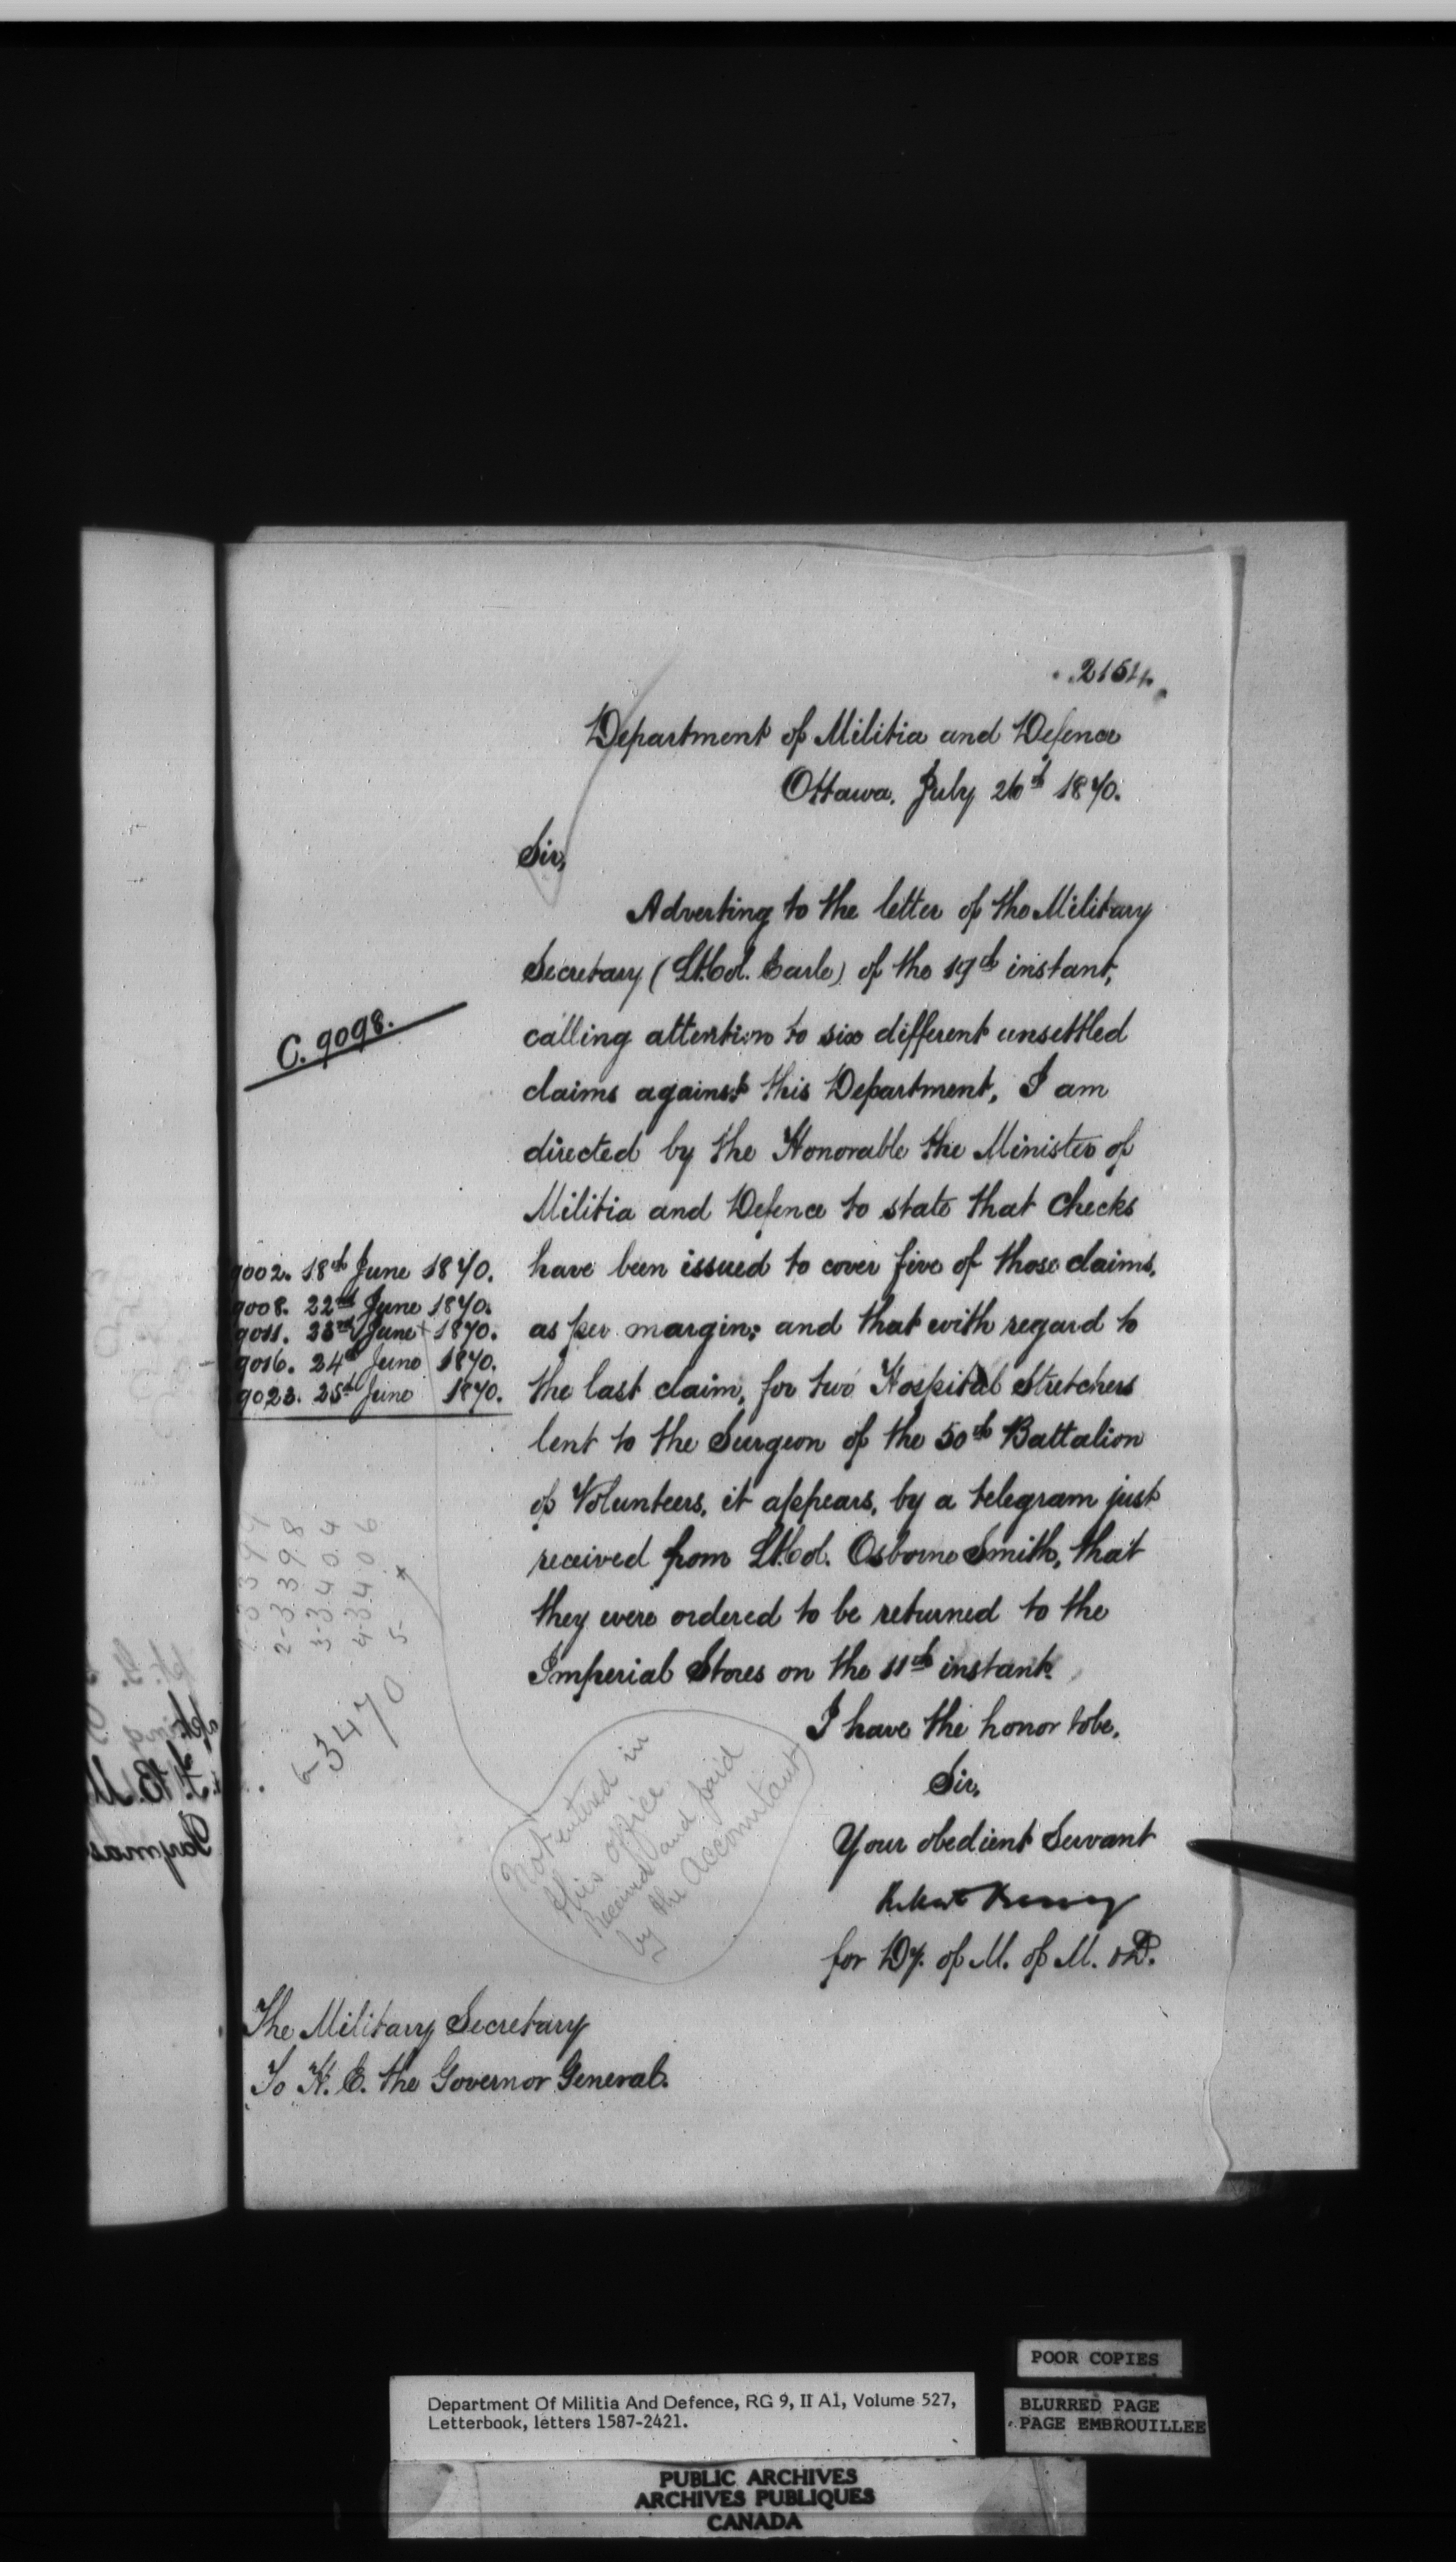 2154.
Department of Militia and Defence
Ottawa, July 26th 1870.
Sir,
Adverting to the letter of the Military
Secretary (Lt. Col. Earle) of the 19th instant,
C. 9098.
calling attention to six different unsettled
claims against this Department, I am
directed by the Honorable the Minister of
Militia and Defence to state that Checks
have been issued to cover five of those claims,
as per margin; and that with regard to
the last claim, for two Hospital Stretchers
lent to the Surgeon of the 50th Battalion
of Volunteers, it appears, by a telegram just
received from Lt. Col. Osborne Smith, that
they were ordered to be returned to the
Imperial Stores on the 11th instant.
9002. 18th June 1870.
9008. 22nd June 1870.
9011. 23rd June 1870.
9016. 24th June 1870.
9023. 25th June 1870.
2-3398
3-3404
4-3406
5- x
6-3470
I have the honor to be,
Sir,
Your obedient Servant
for Dy. of M. of M. & D.
Not entered in
this office
Received and paid
by the Accountant
The Military Secretary
To H. E. the Governor General.
POOR COPIES
BLURRED PAGE
PAGE EMBROUILLEE
Department Of Militia And Defence, RG 9, II A1, Volume 527,
Letterbook, letters 1587-2421.
PUBLIC ARCHIVES
ARCHIVES PUBLIQUES
CANADA